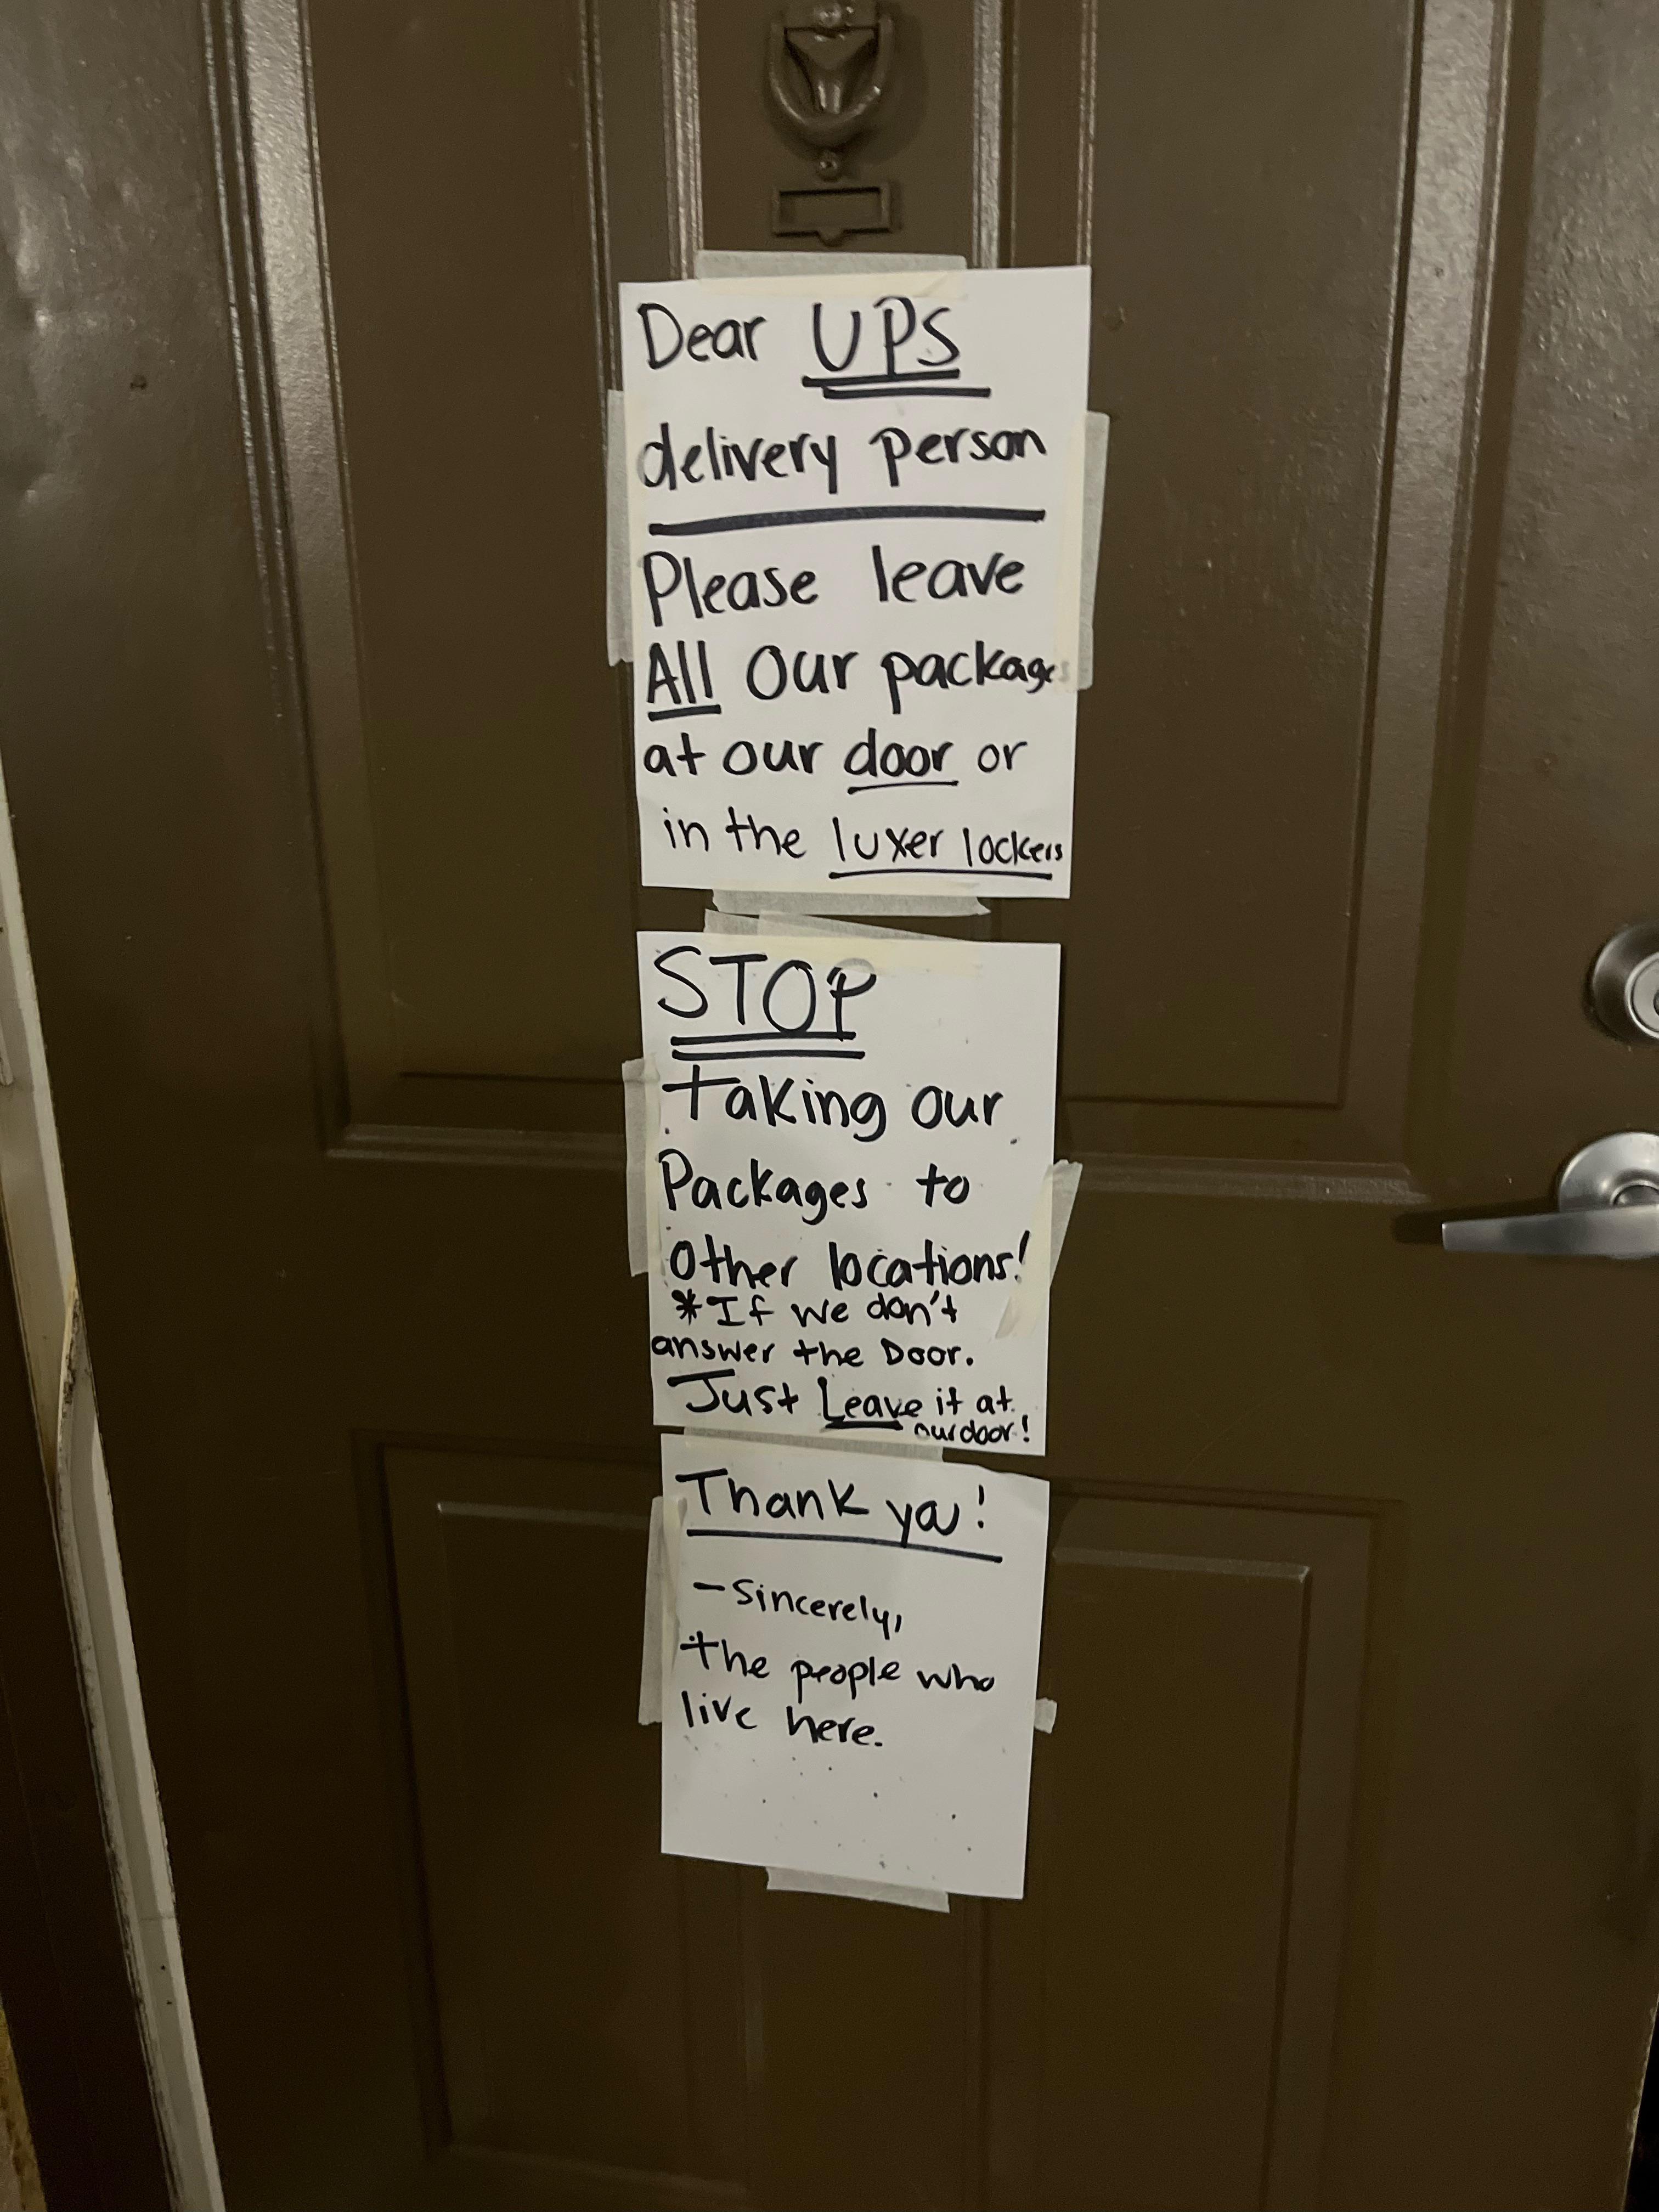 Dear UPS
delivery person
Please leave
All our packages
at our door or
in the luxer lockers
STOP
Taking our
Packages to
Other locations!
*If we don't
answer the Door.
Just Leave it at
our door!
Thank you!
-Sincerely,
The people who
live here.